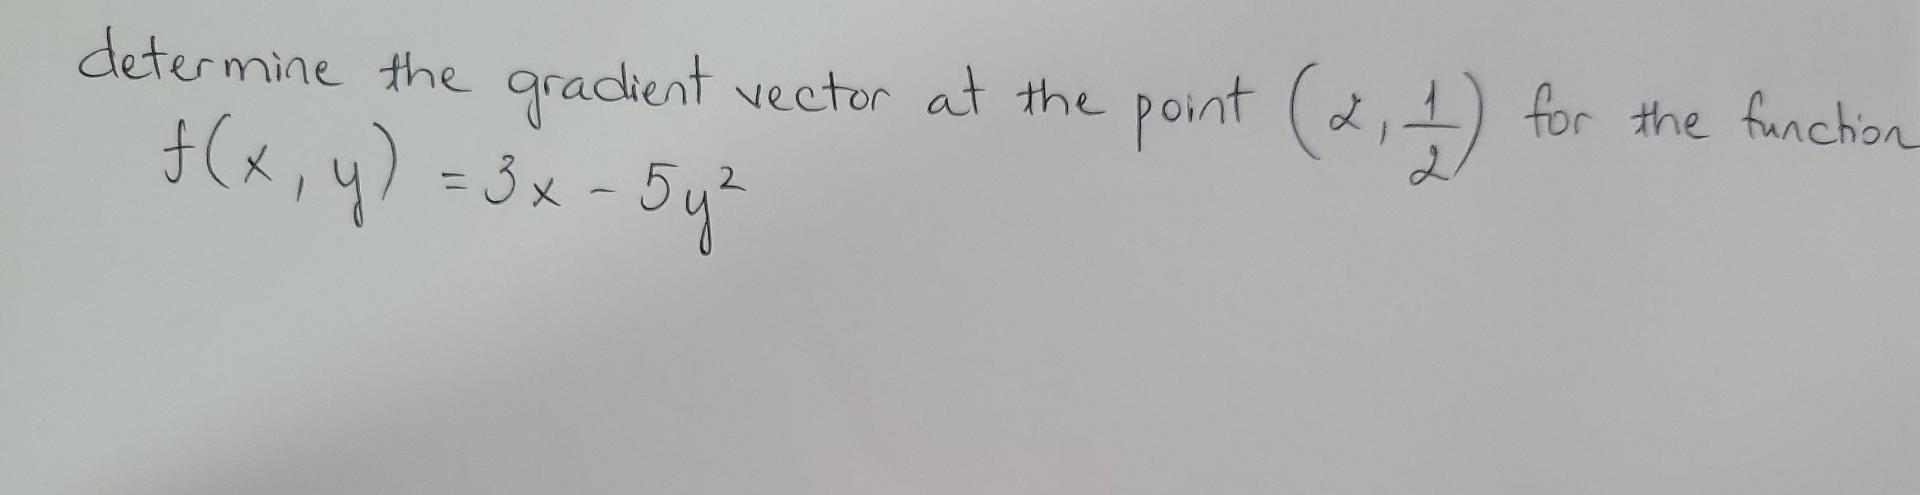 determine the gradient vector at the point (2, 1/2) for the function
f(x, y) = 3x - 5y²